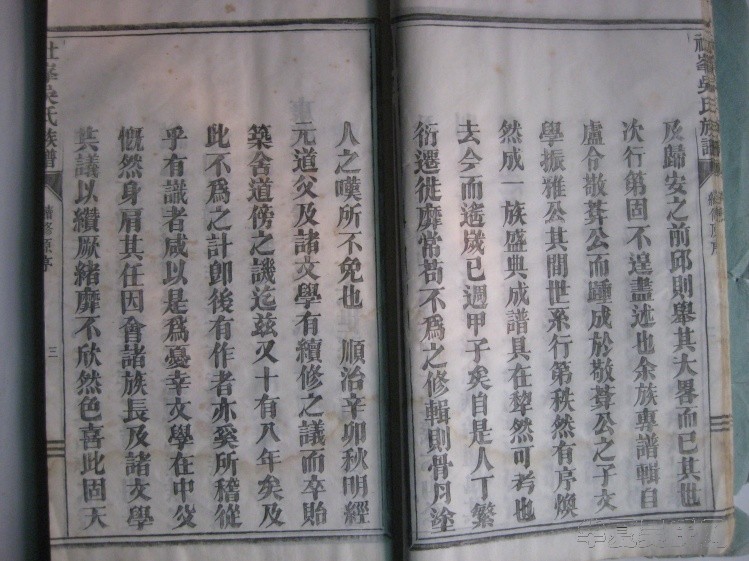 及歸安之前邱則舉其大畧而已其世
次行第固不遑盡述也余族專譜輯自
盧令敬葊公而踵成於敬葊公之子文
學振雅公其間世系行第秩然有序煥
然成一族盛典成譜具在犂然可考也
去今而遙歲已週甲子矣自是人丁繁
衍遷徙靡常苟不爲之修輯則骨肉塗
人之嘆所不免也 順治辛卯秋明經
元道父及諸文學有續修之議而卒貽
築舍道傍之譏迄兹又十有八年矣及
此不爲之計卽後有作者亦奚所稽從
乎有識者咸以是爲憂幸文學在中父
慨然身肩其任因會諸族長及諸文學
共議以纘厥緒靡不欣然色喜此固天
吳氏族譜
續修原序
三